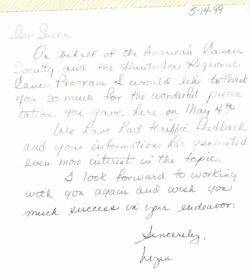 5-14-99
Dear Susan
On behalf of the American Cancer
Society and the Hunterdon Regional
Cancer Program I would like to thank
you so much for the wonderful presen
tation you gave here on May 4th
We have had terrific feedback
and your information has generated
even more interest in the topic.
I look forward to working
with you again and wish you
much success in your endeavor.
Sincerely,